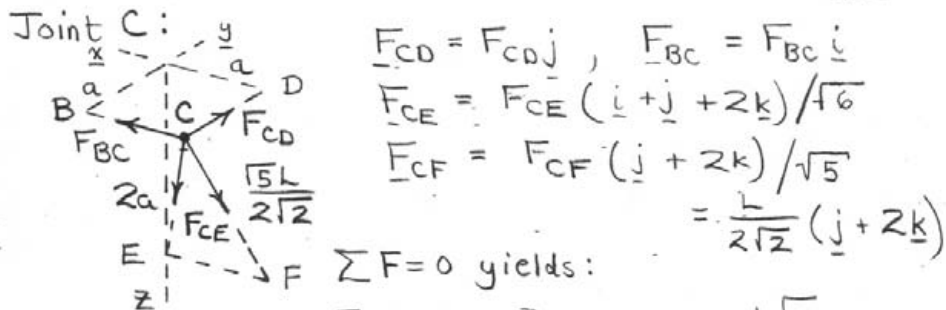 Joint C:
x y
a a
B C D
F_BC F_CD
2a F_CE √5L/2√2
E F
z
F_CD = F_CD j , F_BC = F_BC i
F_CE = F_CE ( i + j + 2k )/√6
F_CF = F_CF ( j + 2k )/√5
= L/2√2 ( j + 2k )
ΣF=0 yields: